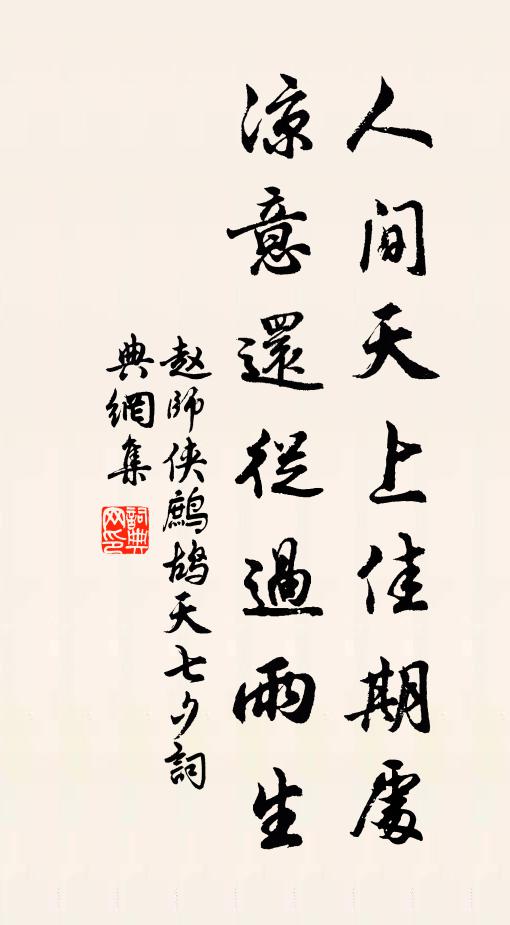 人间天上佳期處
凉意還從過雨生
赵師侠鷓鸪天七夕詞
典網集
詞典网印